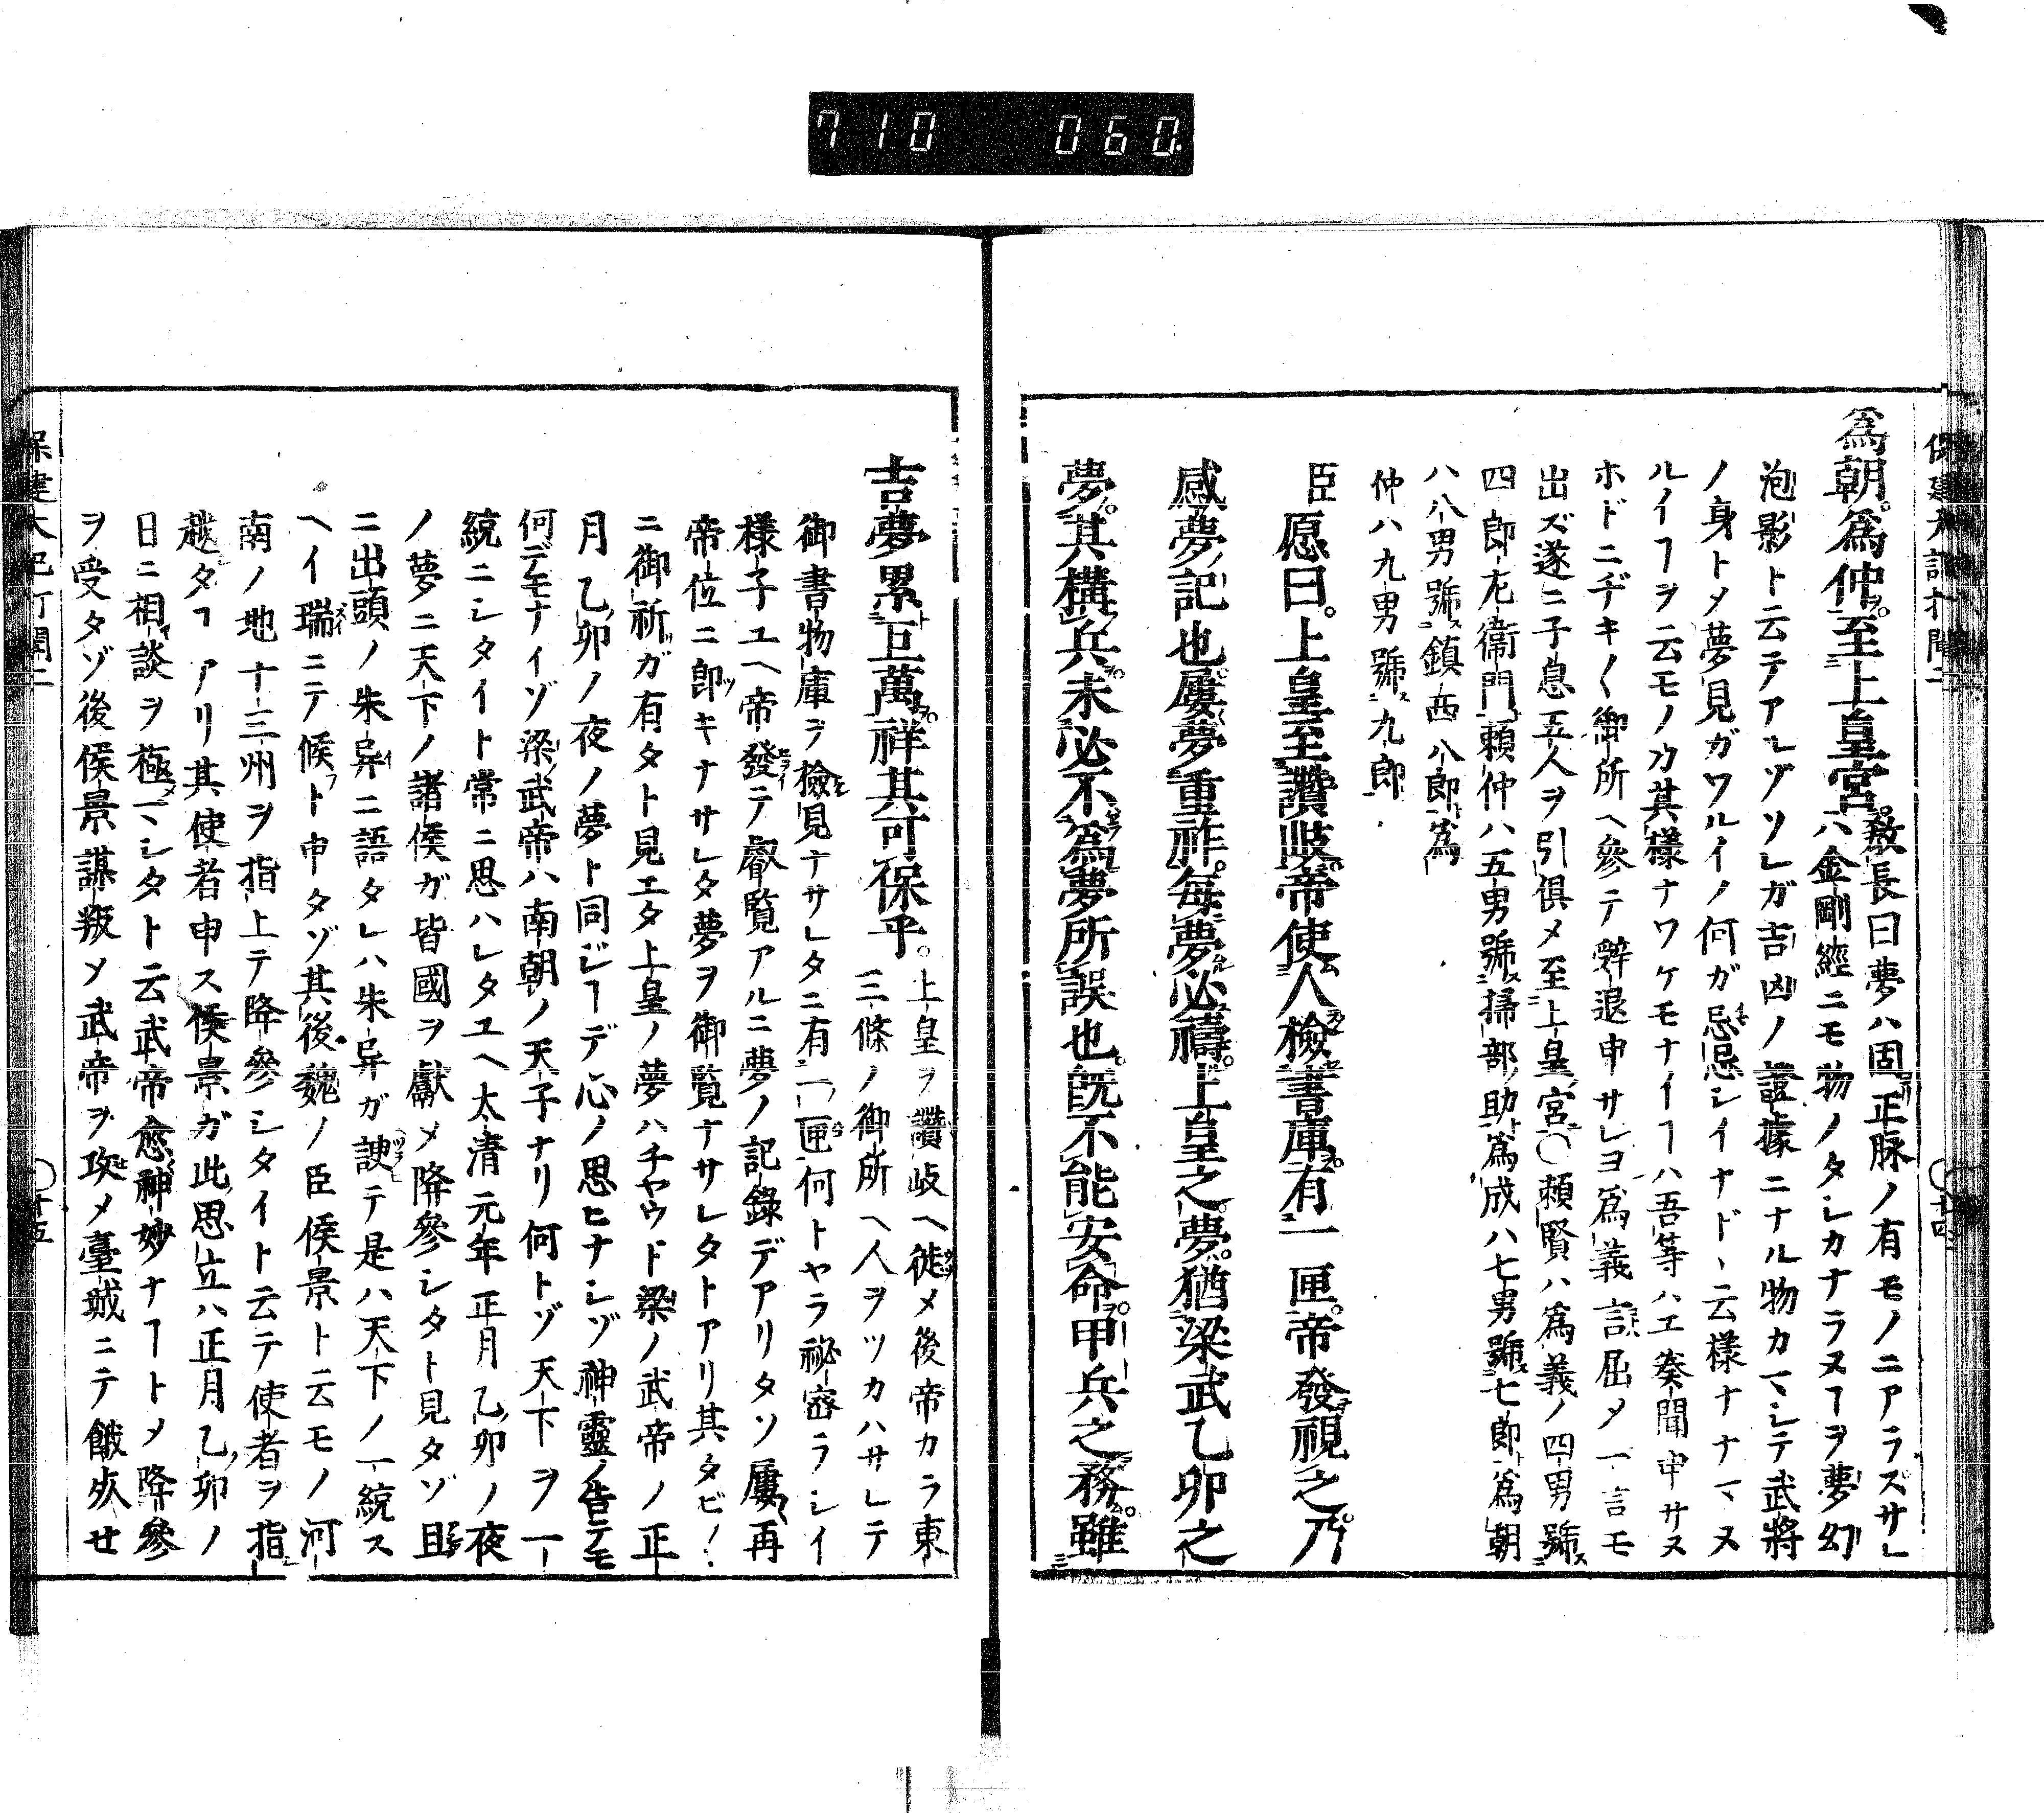 710 060.
保建大記打聞二 ○十四
爲朝。爲仲。至上皇宮。敎長曰夢ハ固正脉ノ有モノニアラズサレ
ハ金剛經ニモ物ノタシカナラヌヿヲ夢幻
泡影ト云テアレゾソレガ吉凶ノ證據ニナル物カマシテ武將
ノ身トメ夢見ガワルイノ何ガ忌忌シイナドヽ云樣ナナマヌ
ルイヿヲ云モノカ其樣ナワケモナイヿハ吾等ハエ奏聞申サヌ
ホドニヂキ〱御所ヘ參テ辭退申サレヨ爲義言屈メ一言モ
出ズ遂ニ子息五人ヲ引俱メ至上皇宮○賴賢ハ爲義ノ四男號ス
四郎左衞門賴仲ハ五男號ス掃部助爲成ハ七男號ス七郎爲朝
ハ八男號ス鎭西八郎爲
仲ハ九男號ス九郎
臣愿曰。上皇至讚岐。帝使人檢書庫。有一匣。帝發視之。乃
感夢記也。屢夢重祚。每夢必禱。上皇之夢。猶梁武乙卯之
夢。其構兵未必不爲夢所誤也。既不能安命。甲兵之務。雖
吉夢累巨萬。祥其可保乎。上皇ヲ讚岐ヘ徙メ後帝カラ東
三條ノ御所ヘ人ヲツカハサレテ
御書物庫ヲ檢見ナサレタニ有一匣何トヤラ祕密ラシイ
樣子ユヘ帝發テ叡覽アルニ夢ノ記錄デアリタソ屢再
帝位ニ卽キナサレタ夢ヲ御覽ナサレタトアリ其タビ〱
ニ御祈ガ有タト見エタ上皇ノ夢ハチヤウド梁ノ武帝ノ正
月乙卯ノ夜ノ夢ト同ジヿデ心ノ思ヒナシゾ神靈ノ告テモ
何デモナイゾ梁武帝ハ南朝ノ天子ナリ何トゾ天下ヲ一
統ニシタイト常ニ思ハレタユヘ太淸元年正月乙卯ノ夜
ノ夢ニ天下ノ諸侯ガ皆國ヲ獻メ降參シタト見タゾ且
ニ出頭ノ朱异ニ語タレハ朱异ガ諛テ是ハ天下ノ一統ス
ヘイ瑞ニテ候ト申タゾ其後魏ノ臣侯景ト云モノ河
南ノ地十三州ヲ指上テ降參シタイト云テ使者ヲ指
越タヿアリ其使者申ス侯景ガ此思立ハ正月乙卯ノ
日ニ相談ヲ極マシタト云武帝愈神妙ナヿトメ降參
ヲ受タゾ後侯景謀叛メ武帝ヲ攻メ臺城ニテ餓死セ
保建大記打聞二 ○十五